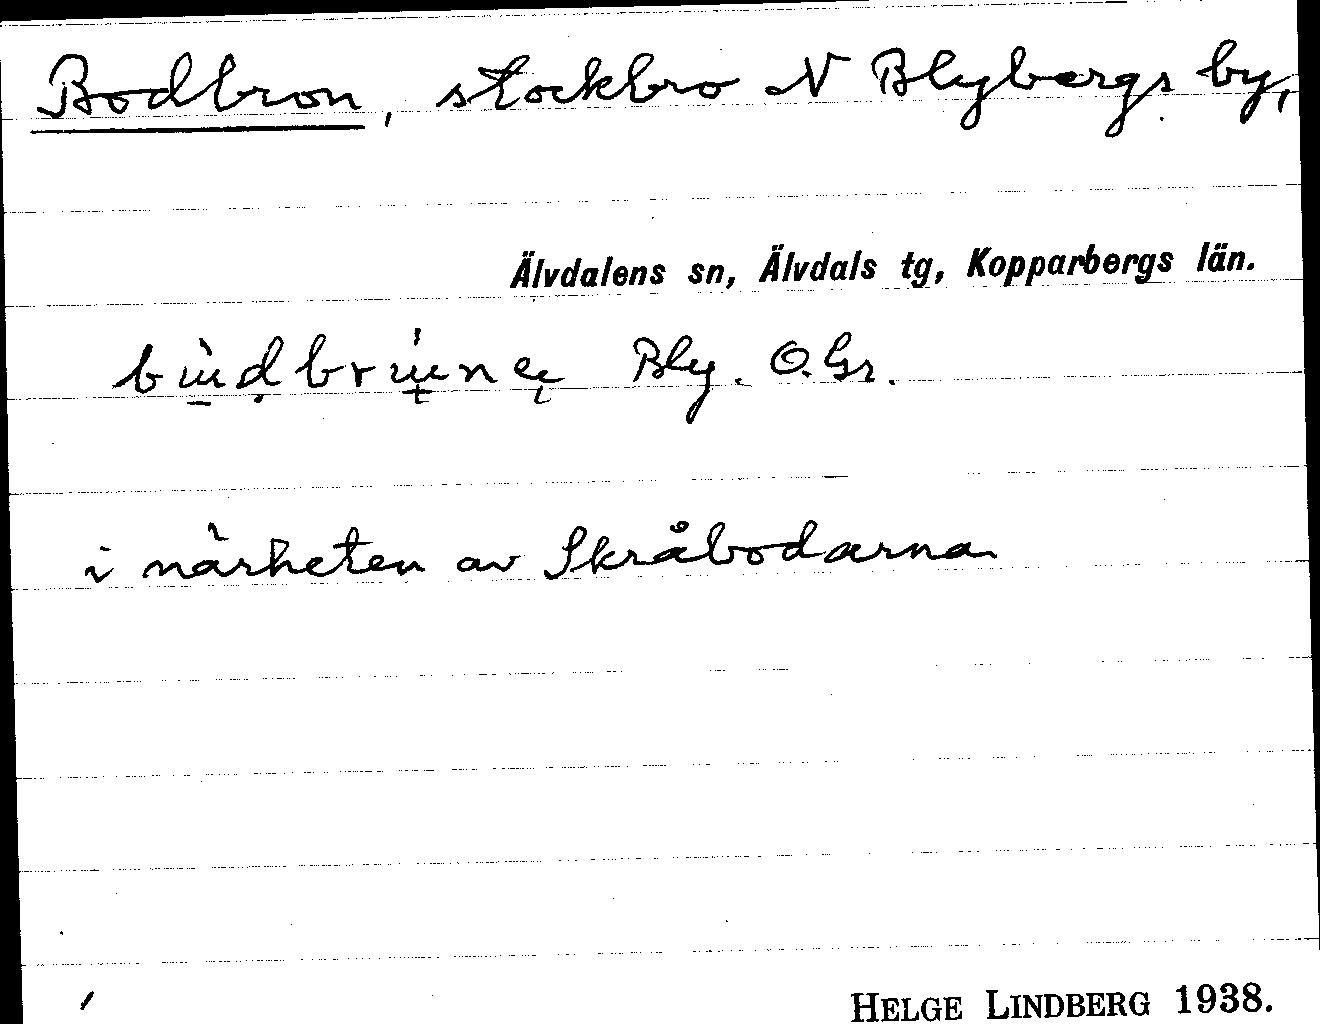 Bodbron, stockbro N Blybergs by,
Älvdalens sn, Älvdals tg, Kopparbergs län.
Bly. O. Gr.
i närheten av Skråbodarna
HELGE LINDBERG 1938.